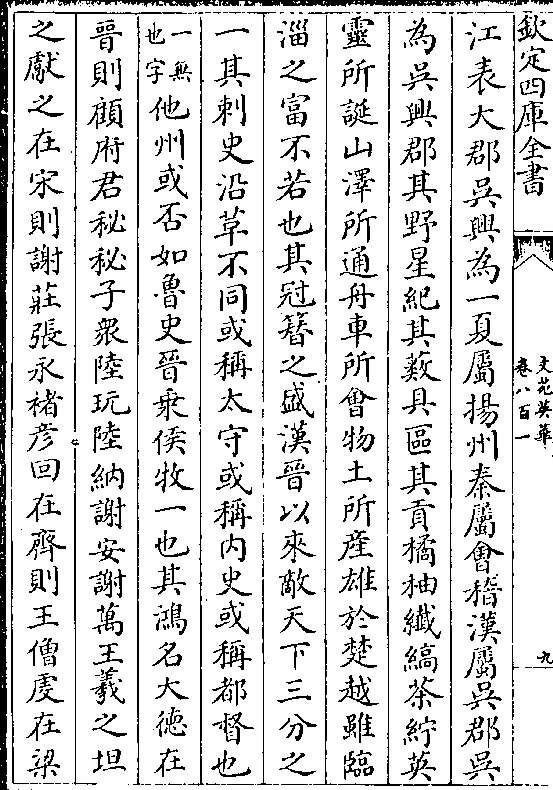 欽定四庫全書
文苑英華
卷八百一
九
江表大郡吳興為一夏屬揚州秦屬會稽漢屬吳郡吳
為吳興郡其野星紀其藪具區其貢橘柚纖縞茶紵英
靈所誕山澤所通舟車所會物土所産雄於楚越雖臨
淄之富不若也其冠簪之盛漢晉以來敵天下三分之
一其刺史沿草不同或稱太守或稱内史或稱都督也
一無也字他州或否如魯史晉乗侯牧一也其鴻名大徳在
晉則顧府君秘秘子衆陸玩陸納謝安謝萬王羲之坦
之獻之在宋則謝莊張永褚彦回在齊則王僧虔在梁